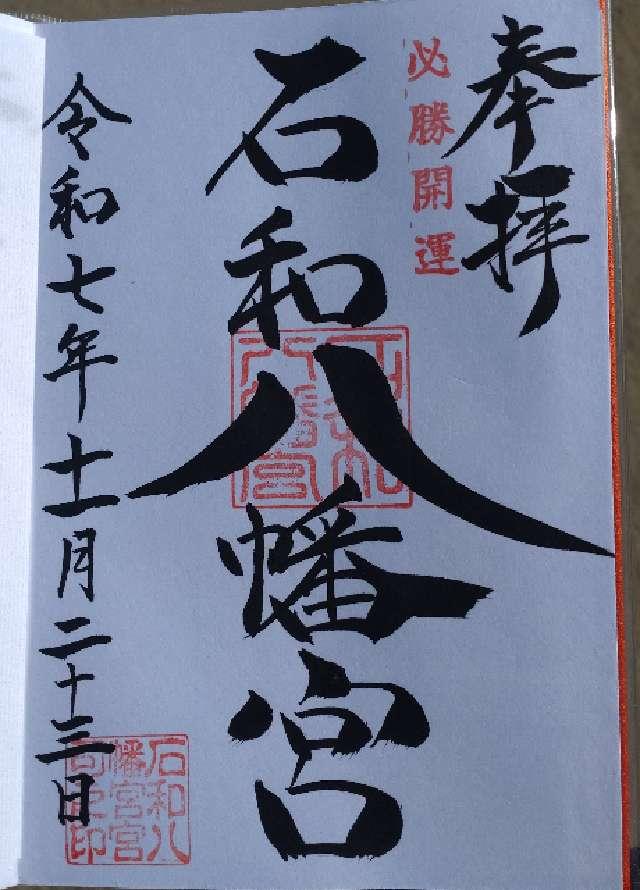 奉拝
必勝開運
石和八幡宮
石和八幡宮
令和七年十一月二十三日
石和八
幡宮宮
司之印